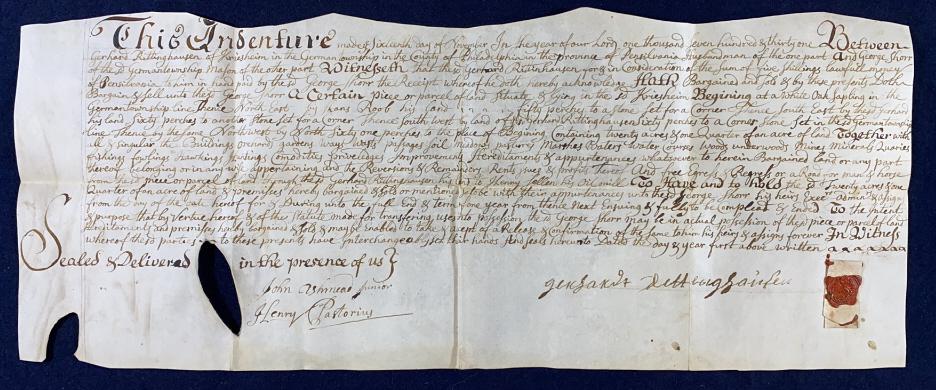 This Indenture made y.e Sixteenth day of November In the year of our Lord one thousand seven hundred & thirty one Between
Gerhard Rittinghausen of Kriesheim in the Germantownship in the County of Philadelphia in the province of Pensilvania Husbandman of the one part and George Shorr
of the sd Germantownship Mason of the other part Witnesseth that the sd Gerhard Rittinhausen for & in Consideration of the sum of five shillings lawfull money
of Pensilvania to him in hand paid by the sd George Shorr the Receipt whereof he doth hereby acknowledge Hath Bargained and sold & by these presents Doth
Bargain & sell unto the sd George Shorr A Certain piece or parcel of land Situate & being in the sd Kriesheim Begining at a White Oak Sapling in the
Germantownship line Thence North East by Evans Roob his land fifty perches to a stone set for a Corner Thence South East by the sd Gerhard
his land Sixty perches to another stone set for a Corner Thence South west by land of sd Gerhard Rittinghausen Sixty perches to a Corner stone Set in the sd Germantownship
line Thence by the same Northwest by North Sixty one perches to the place of Begining Containing twenty acres & one Quarter of an acre of land Together with
all & singular the Buildings orchards gardens ways wasts passages soil meadows pastures Marshes Waters Water Courses woods underwood Mines Minerals Quaries
fishings fowlings Hawkings Huntings Comodities priveledges Improvements Hereditaments & appurtenances whatsoever to herein Bargained land or any part
thereof belonging or in any will appertaining and the Reversions & Remainders Rents issues & profits thereof And free Egress & Regress or a Road for man & horse
from the sd piece or parcel of land through the sd Gerhard Rittinghausen his land to Henry his Oil mill To Have and to hold the sd Twenty acres & one
Quarter of an acre of land & premises hereby bargained & sold or mentioned to be with their appurtenances unto the sd George Shorr his heirs Exec.rs Admin.rs & Assigns
from the day of the date hereof for & During unto the full End & term of one year from thence Next Ensuing & fully to be compleat & Ended To the Intent
& purpose that by Vertue hereof & of the Statute made for transferring uses into possession the sd George Shorr may be in actual possession of the sd piece or parcel of land
hereditaments and premises hereby bargained & sold & may be enabled to take & accept of a Release & Confirmation of the same to him his heirs & assigns forever In Witness
whereof the sd parties to these presents have Interchangeably set their hands And seals hereunto Dated the day & year first above written
Sealed & Delivered in the presence of us
John Junior
Henry Pastorius
gerhardt Rettinghausen